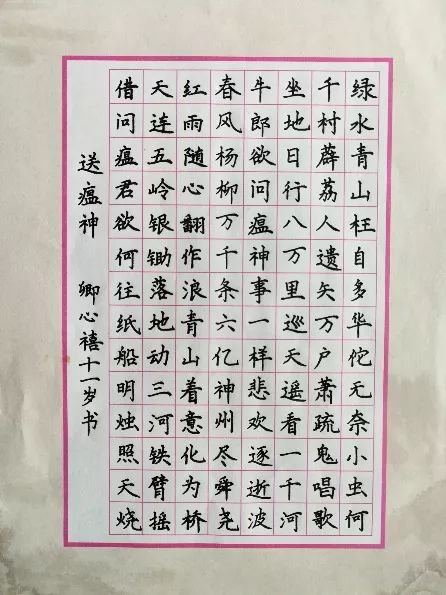 绿水青山枉自多华佗无奈小虫何
千村薜荔人遗矢万户萧疏鬼唱歌
坐地日行八万里巡天遥看一千河
牛郎欲问瘟神事一样悲欢逐逝波
春风杨柳万千条六亿神州尽舜尧
红雨随心翻作浪青山着意化为桥
天连五岭银锄落地动三河铁臂摇
借问瘟君欲何往纸船明烛照天烧
送瘟神 卿心禧十一岁书